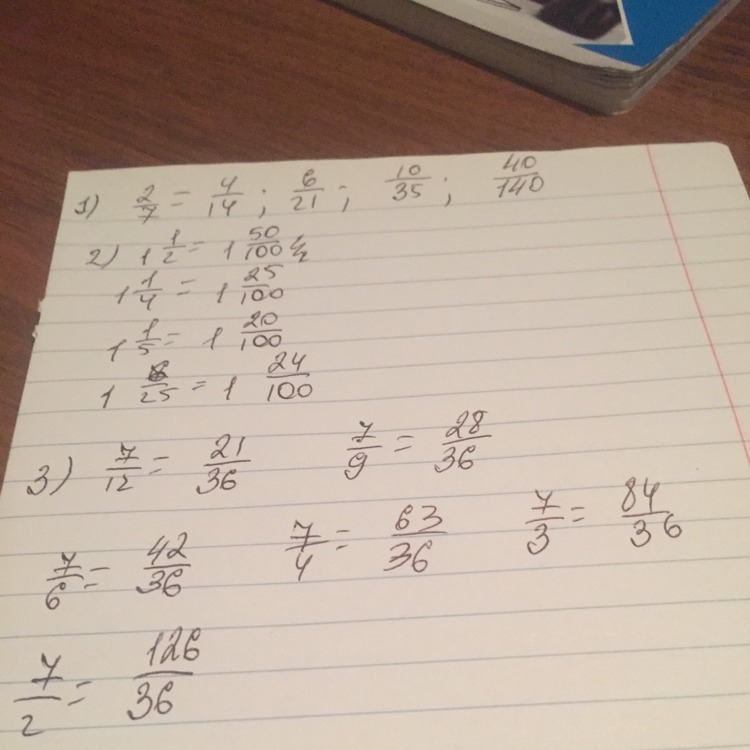 1) 2/7 = 4/14 ; 6/21 ; 10/35 ; 40/140
2) 1 1/2 = 1 50/100
1 1/4 = 1 25/100
1 1/5 = 1 20/100
1 6/25 = 1 24/100
3) 7/12 = 21/36 7/9 = 28/36
7/6 = 42/36 7/4 = 63/36 7/3 = 84/36
7/2 = 126/36